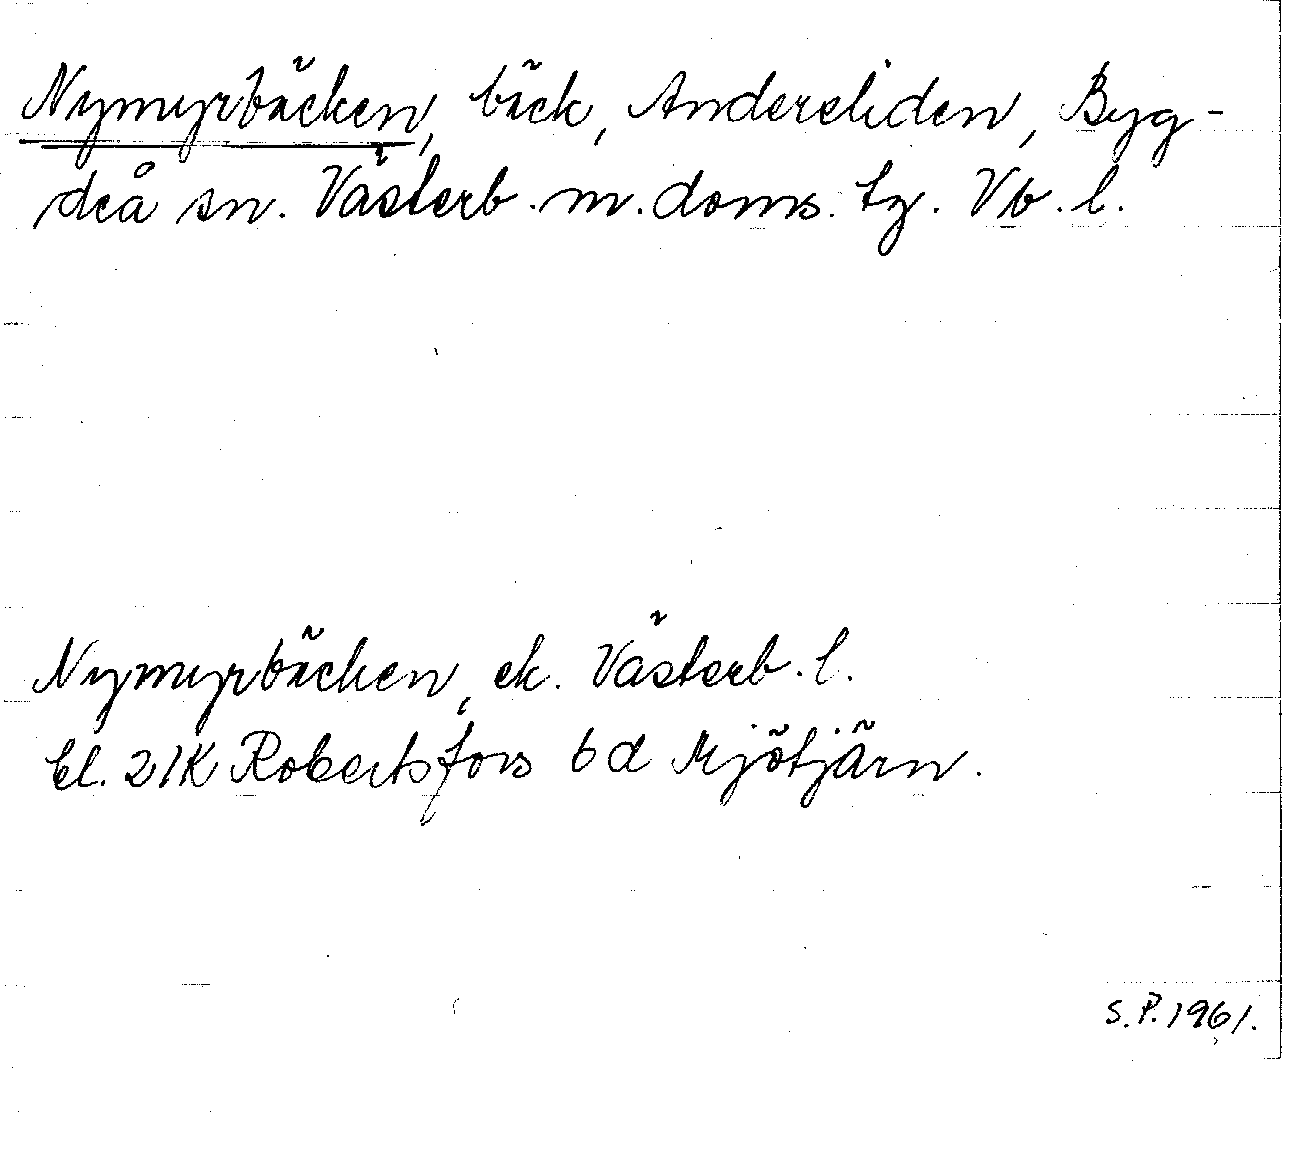 Nymyrbäcken, bäck, Andersliden, Byg-
deå sn. Västerb. m. doms. tg. Vb. l.
Nymyrbäcken, ek. Västerb. l.
bl. 21K Robertsfors 6 d Mjötjärn.
S. P. 1961.